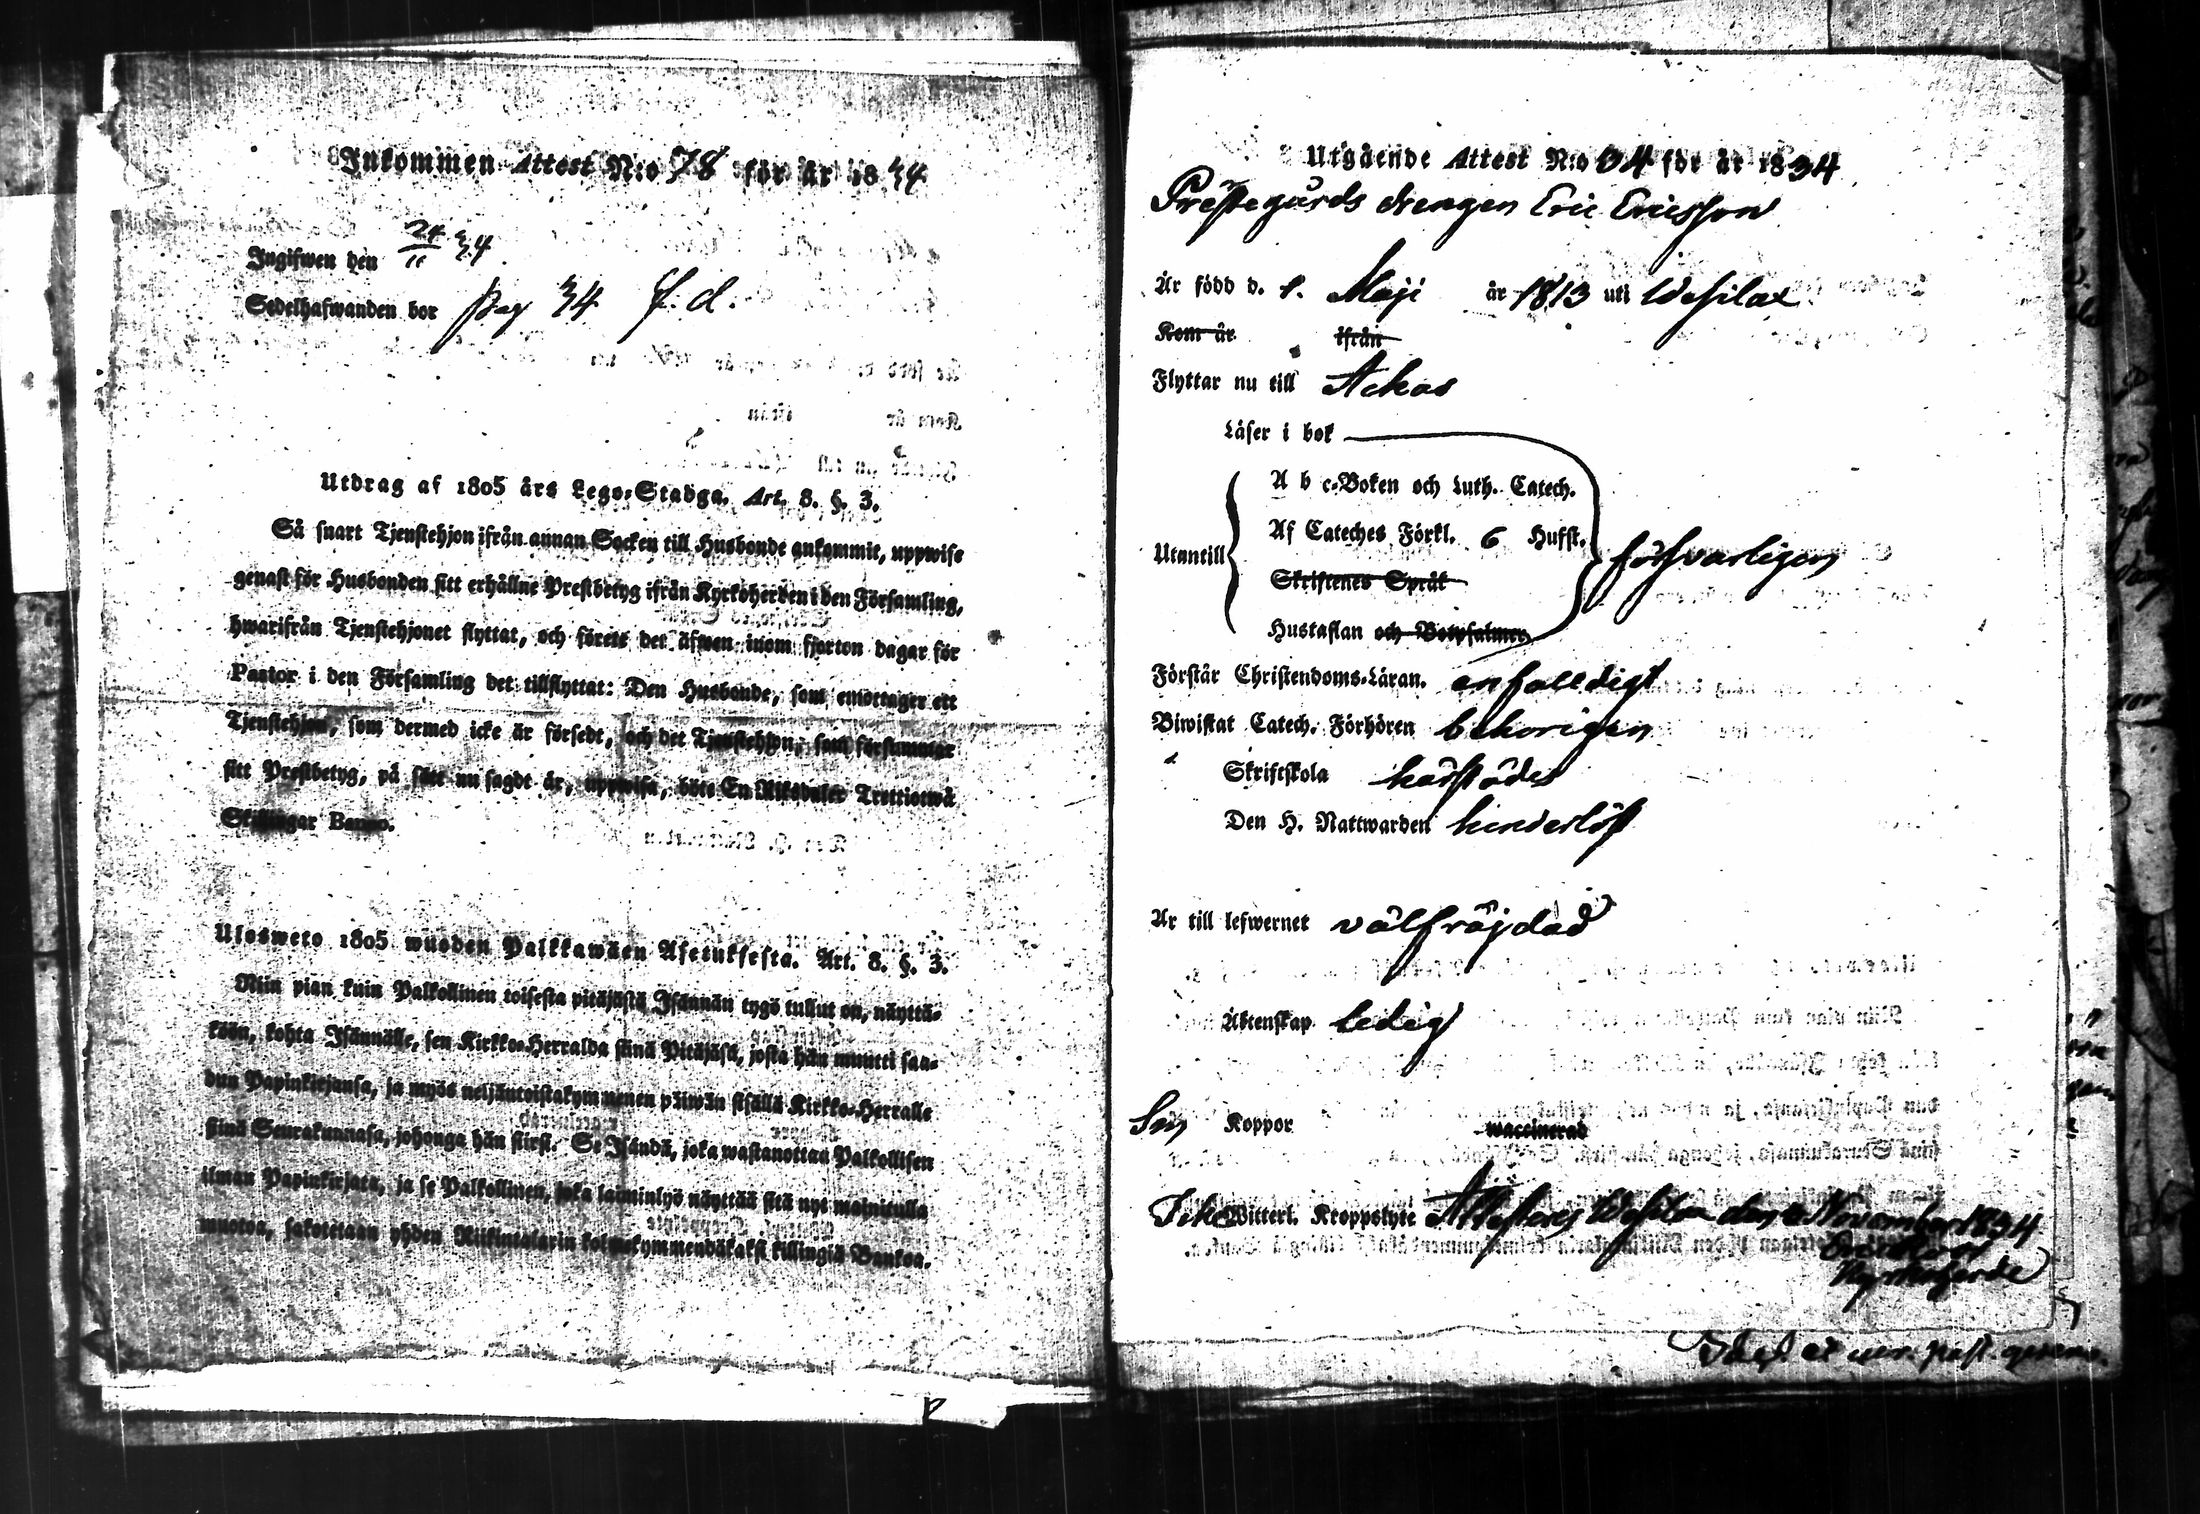 Inkommen Attest N:o 78 för år 1834
Ingifwen den 24/11 34
Sedelhafwanden bor pag 34 f. d.
Utdrag af 1805 års Lego-Stadga. Art. 8. §. 3.
Så snart Tjenstehjon ifrån annan Socken till Husbonde ankommit, uppwise
genast för Husbonden sitt erhållne Prestbetyg ifrån Kyrkoherden i den Församling,
hwarifrån Tjenstehjonet flyttat, och förete det äfwen inom fjorton dagar för
Pastor i den Församling det tillflyttat: Den Husbonde, som emottager ett
Tjenstehjon, som dermed icke är försedt, och det Tjenstehjon, som försummar
sitt Prestbetyg, på sätt nu sagdt är, uppwisa, böte En Riksdaler Trettiotwå
Skillingar Banco.
Ulosweto 1805 wuoden Palkkawäen Asetuksesta. Art. 8. §. 3.
Niin pian kuin Palkollinen toisesta pitäjästä Isännän tygö tullut on, näyttä-
köön, kohta Isännälle, sen Kirkko-Herralda siinä Pitäjäsä, josta hän muutti saa-
dun Papinkirjansa, ja myös neljäntoistakymmenen päiwän sisällä Kirkko-Herralle
siinä Seurakunnasa, johonga hän siirsi. Se Isändä, joka wastanottaa Palkollisen
ilman Papinkirjata, ja se Palkollinen, joka laiminlyö näyttää sitä nyt mainitulla
muotoa, sakotetaan yhden Riikintalarin kolmekymmendäkaksi killingiä Bankoa.
Utgående Attest N:o 34 för år 1834
Prestegårds drengen Eric Ericsson
Är född d. 1. Maji år 1813 uti Wesilax
Kom år ifrån
Flyttar nu till Ackas
Läser i bok
A b c-Boken och Luth. Catech.
Af Cateches Förkl. 6 Hufst.
Utantill försvarligen
Skriftenes Språk
Hustaflan och Botpsalmer
Förstår Christendoms-Läran. enfalldigt
Biwistat Catech. Förhören behörigen
Skriftskola härstädes
Den H. Nattwarden hinderlöst
Är till lefwernet välfräjdad
Äktenskap ledig
Koppor waccinerad
Witterl. Kroppslyte Attesteras Wesilax den November 1834
Kyrkoherde